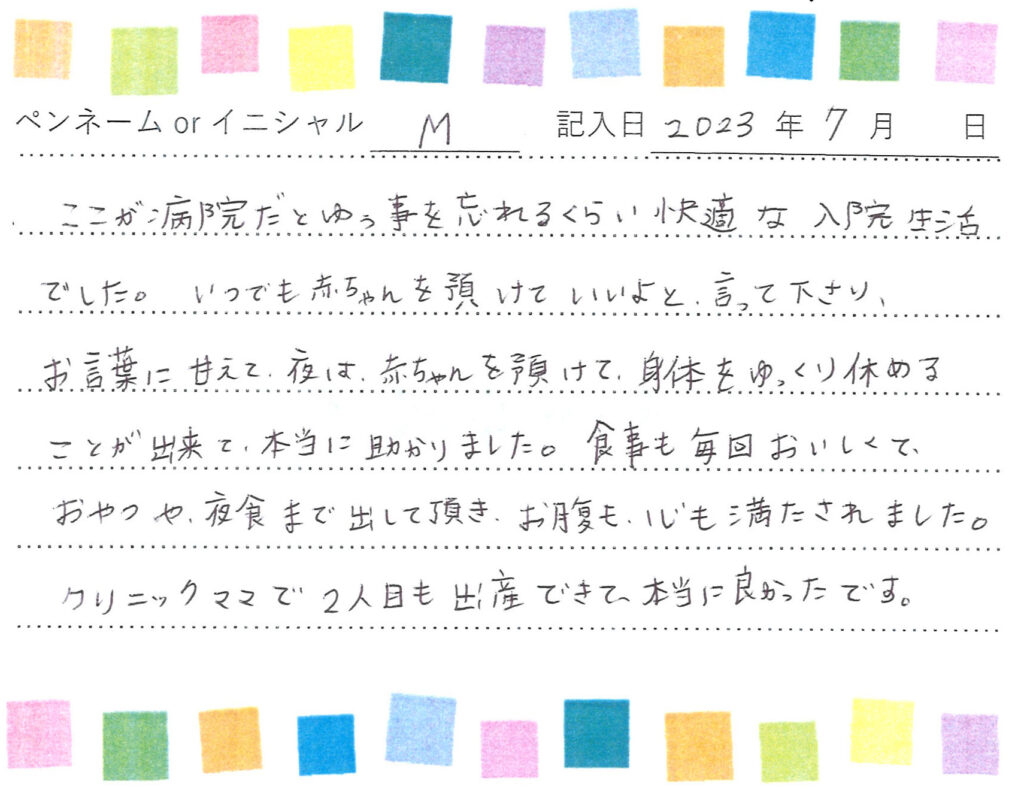 ペンネーム or イニシャル M 記入日 2023 年 7 月 日
ここが病院だとゆう事を忘れるくらい快適な入院生活
でした。いつでも赤ちゃんを預けていいよと、言って下さり、
お言葉に甘えて、夜は、赤ちゃんを預けて、身体をゆっくり休める
ことが出来て、本当に助かりました。食事も毎回おいしくて、
おやつや、夜食まで出して頂き、お腹も、心も満たされました。
クリニックママで2人目も出産できて、本当に良かったです。